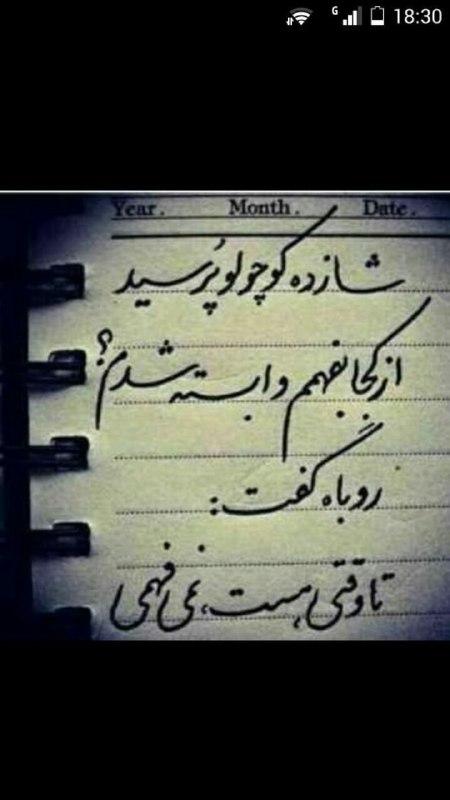 G 18:30
Year. Month. Date.
شازده کوچولو پُرسید
از کجا بفهمم وابسته شدم؟
روباه گفت:
تا وقتی هست، نمی فهمی